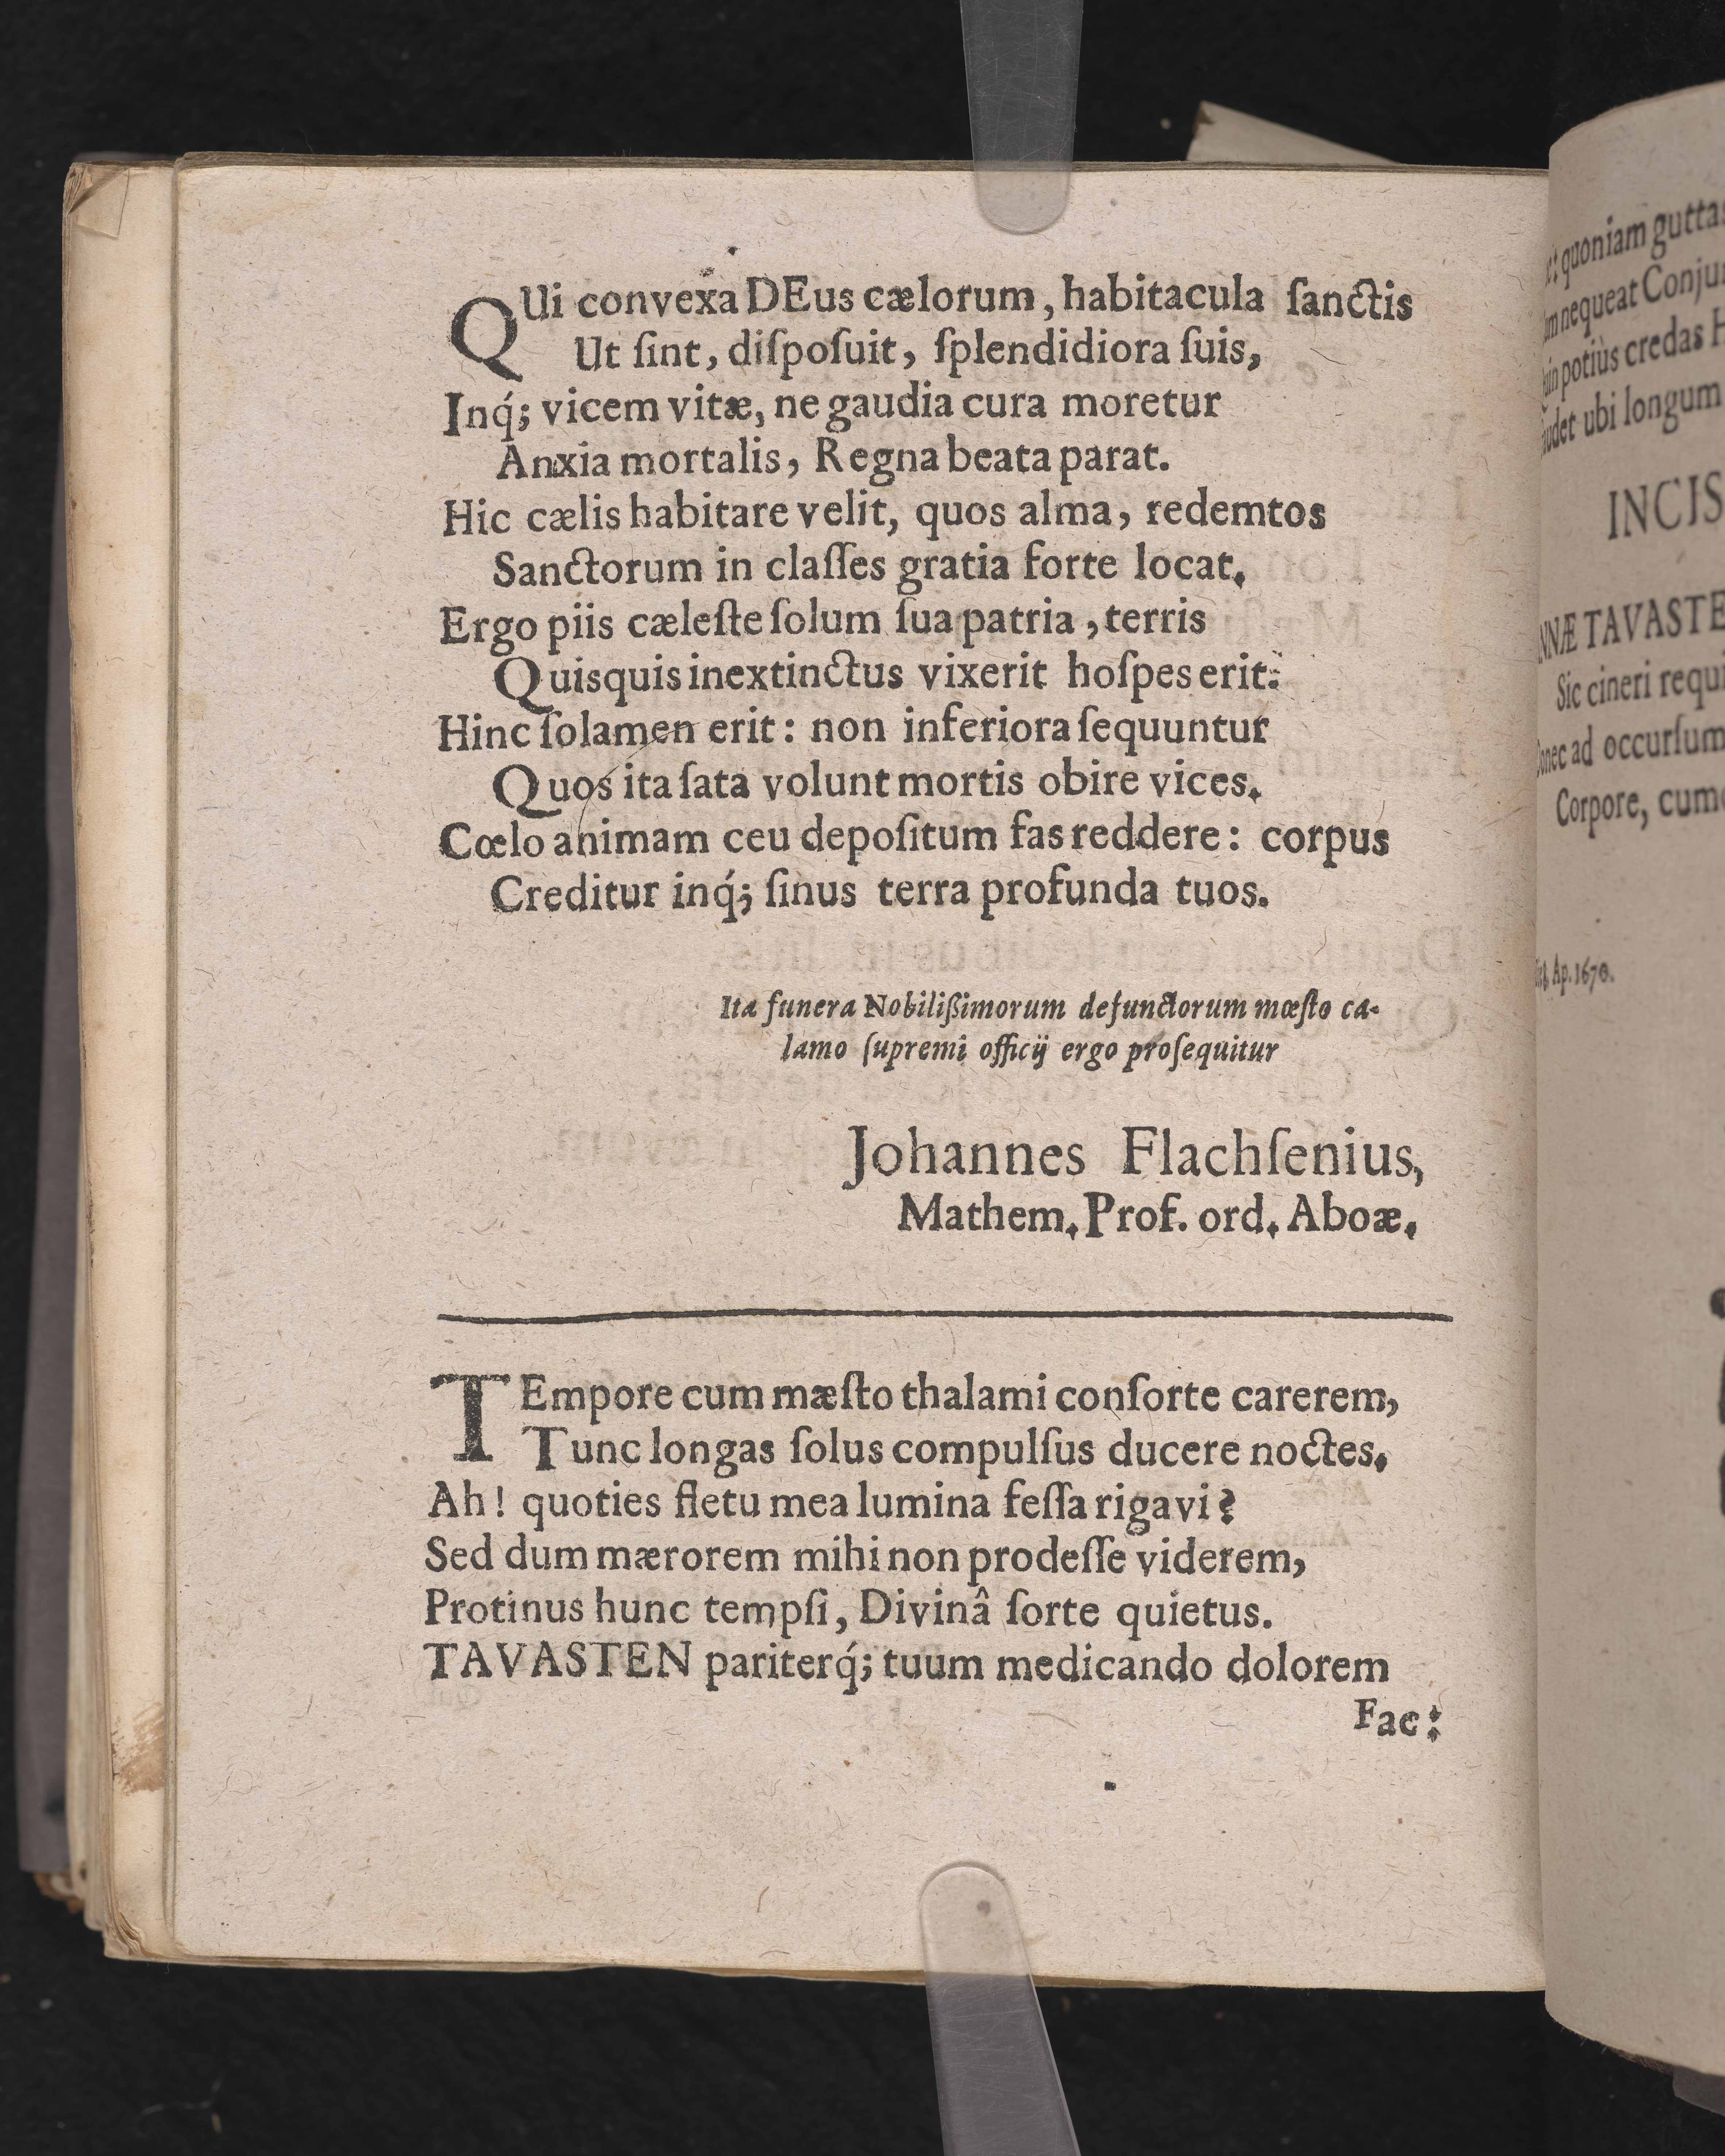 QUi convexa DEus cælorum, habitacula ſanctis
Ut ſint, diſpoſuit, ſplendidiora ſuis,
Inq́; vicem vitæ, ne gaudia cura moretur
Anxia mortalis, Regna beata parat.
Hic cælis habitare velit, quos alma, redemtos
Sanctorum in claſſes gratia forte locat.
Ergo piis cæleſte ſolum ſua patria, terris
Quisquis inextinctus vixerit hoſpes erit:
Hinc ſolamen erit: non inferiora ſequuntur
Quos ita ſata volunt mortis obire vices.
Cœlo animam ceu depoſitum fas reddere: corpus
Creditur inq́; ſinus terra profunda tuos.
Ita funera Nobilißimorum defunctorum mœſto ca-
lamo ſupremi officij ergo proſequitur
Johannes Flachſenius,
Mathem. Prof. ord. Aboæ.
TEmpore cum mæſto thalami conſorte carerem,
Tunc longas ſolus compulſus ducere noctes.
Ah! quoties fletu mea lumina feſſa rigavi?
Sed dum mærorem mihi non prodeſſe viderem,
Protinus hunc tempſi, Divinâ ſorte quietus.
TAVASTEN pariterq́; tuum medicando dolorem
Fac:
quoniam
nequeat
potiùs credas
ubi longum
INCIS
TAVASTE
Sic cineri requi
ad occurſum
Corpore,
Ap. 1670.